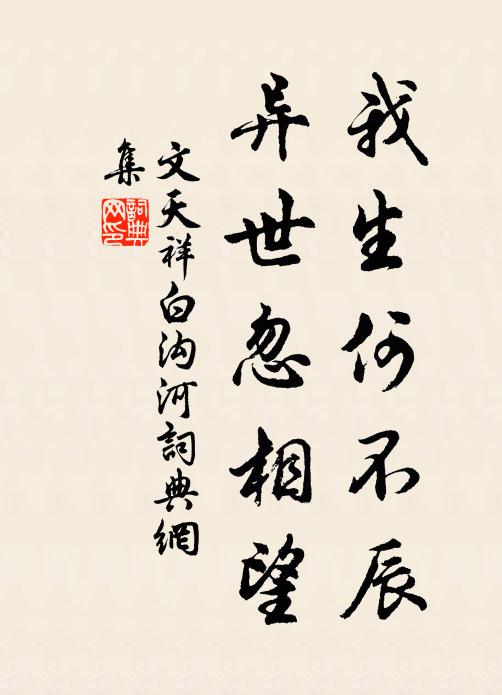 我生何不辰
异世忽相望
文天祥白沟河詞典網
集
詞典
网印